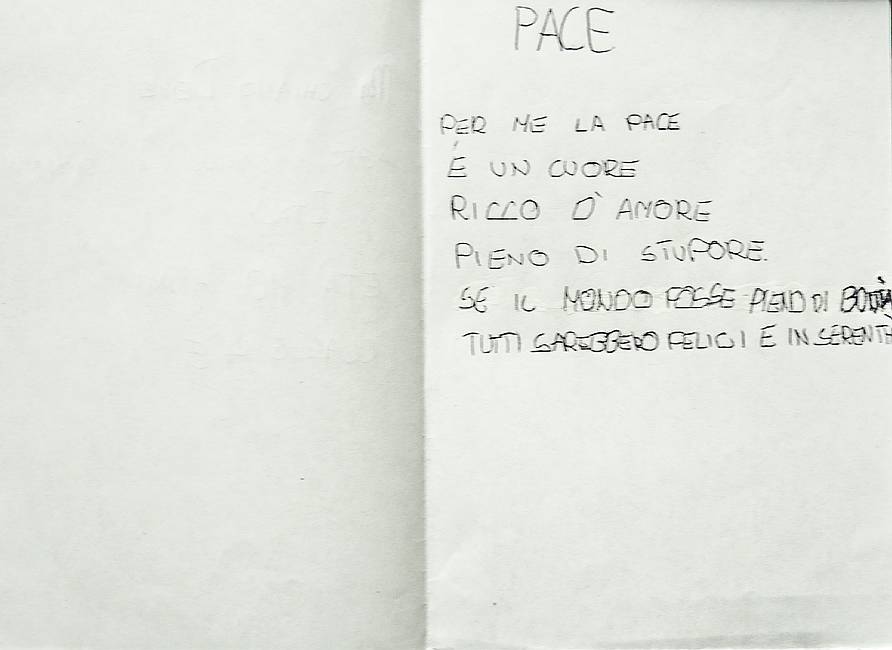 PACE
PER ME LA PACE
É UN CUORE
RICCO D'AMORE
PIENO DI STUPORE.
SE IL MONDO FOSSE PIENO DI
TUTTI SAREBBERO FELICI E IN SERENITÀ